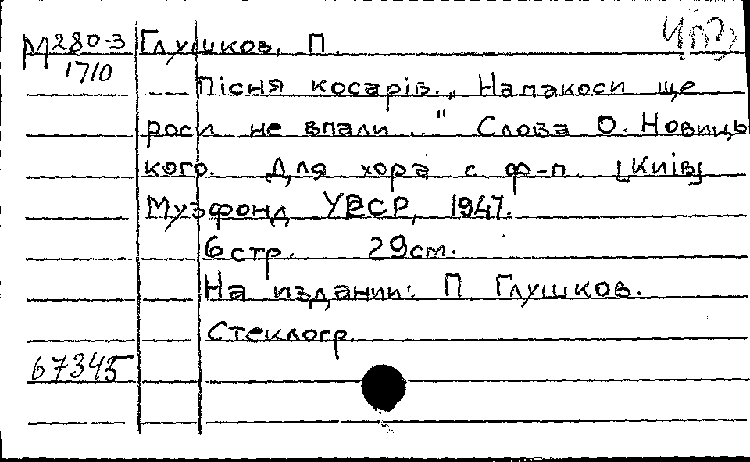 М280-3 Глушков, П.
1710
Пісня косарів. „ Напакоси ще
роси не впали . " Слова О. Новиць
кого. Для хора с ф-п. [Київ]
Музфонд УРСР, 1947.
6 стр. 29 см.
На издании: П Глушков.
Стеклогр.
67345